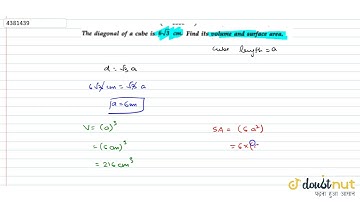 4381439
The diagonal of a cube is 6√3 cm. Find its volume and surface area.
cube length = a
d = √3 a
6√3 cm = √3 a
a = 6cm
V = (a)³
= (6 cm)³
= 216 cm³
SA = (6 a²)
= 6×(
doubtnut
पढ़ना हुआ आसान